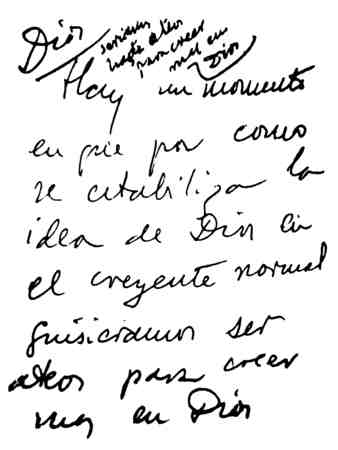 Dios
seriamos
hasta ateos
para creer
mas en
Dios
Hay un momento
en que por como
se estabiliza la
idea de Dios en
el creyente normal
quisieramos ser
ateos para creer
mas en Dios